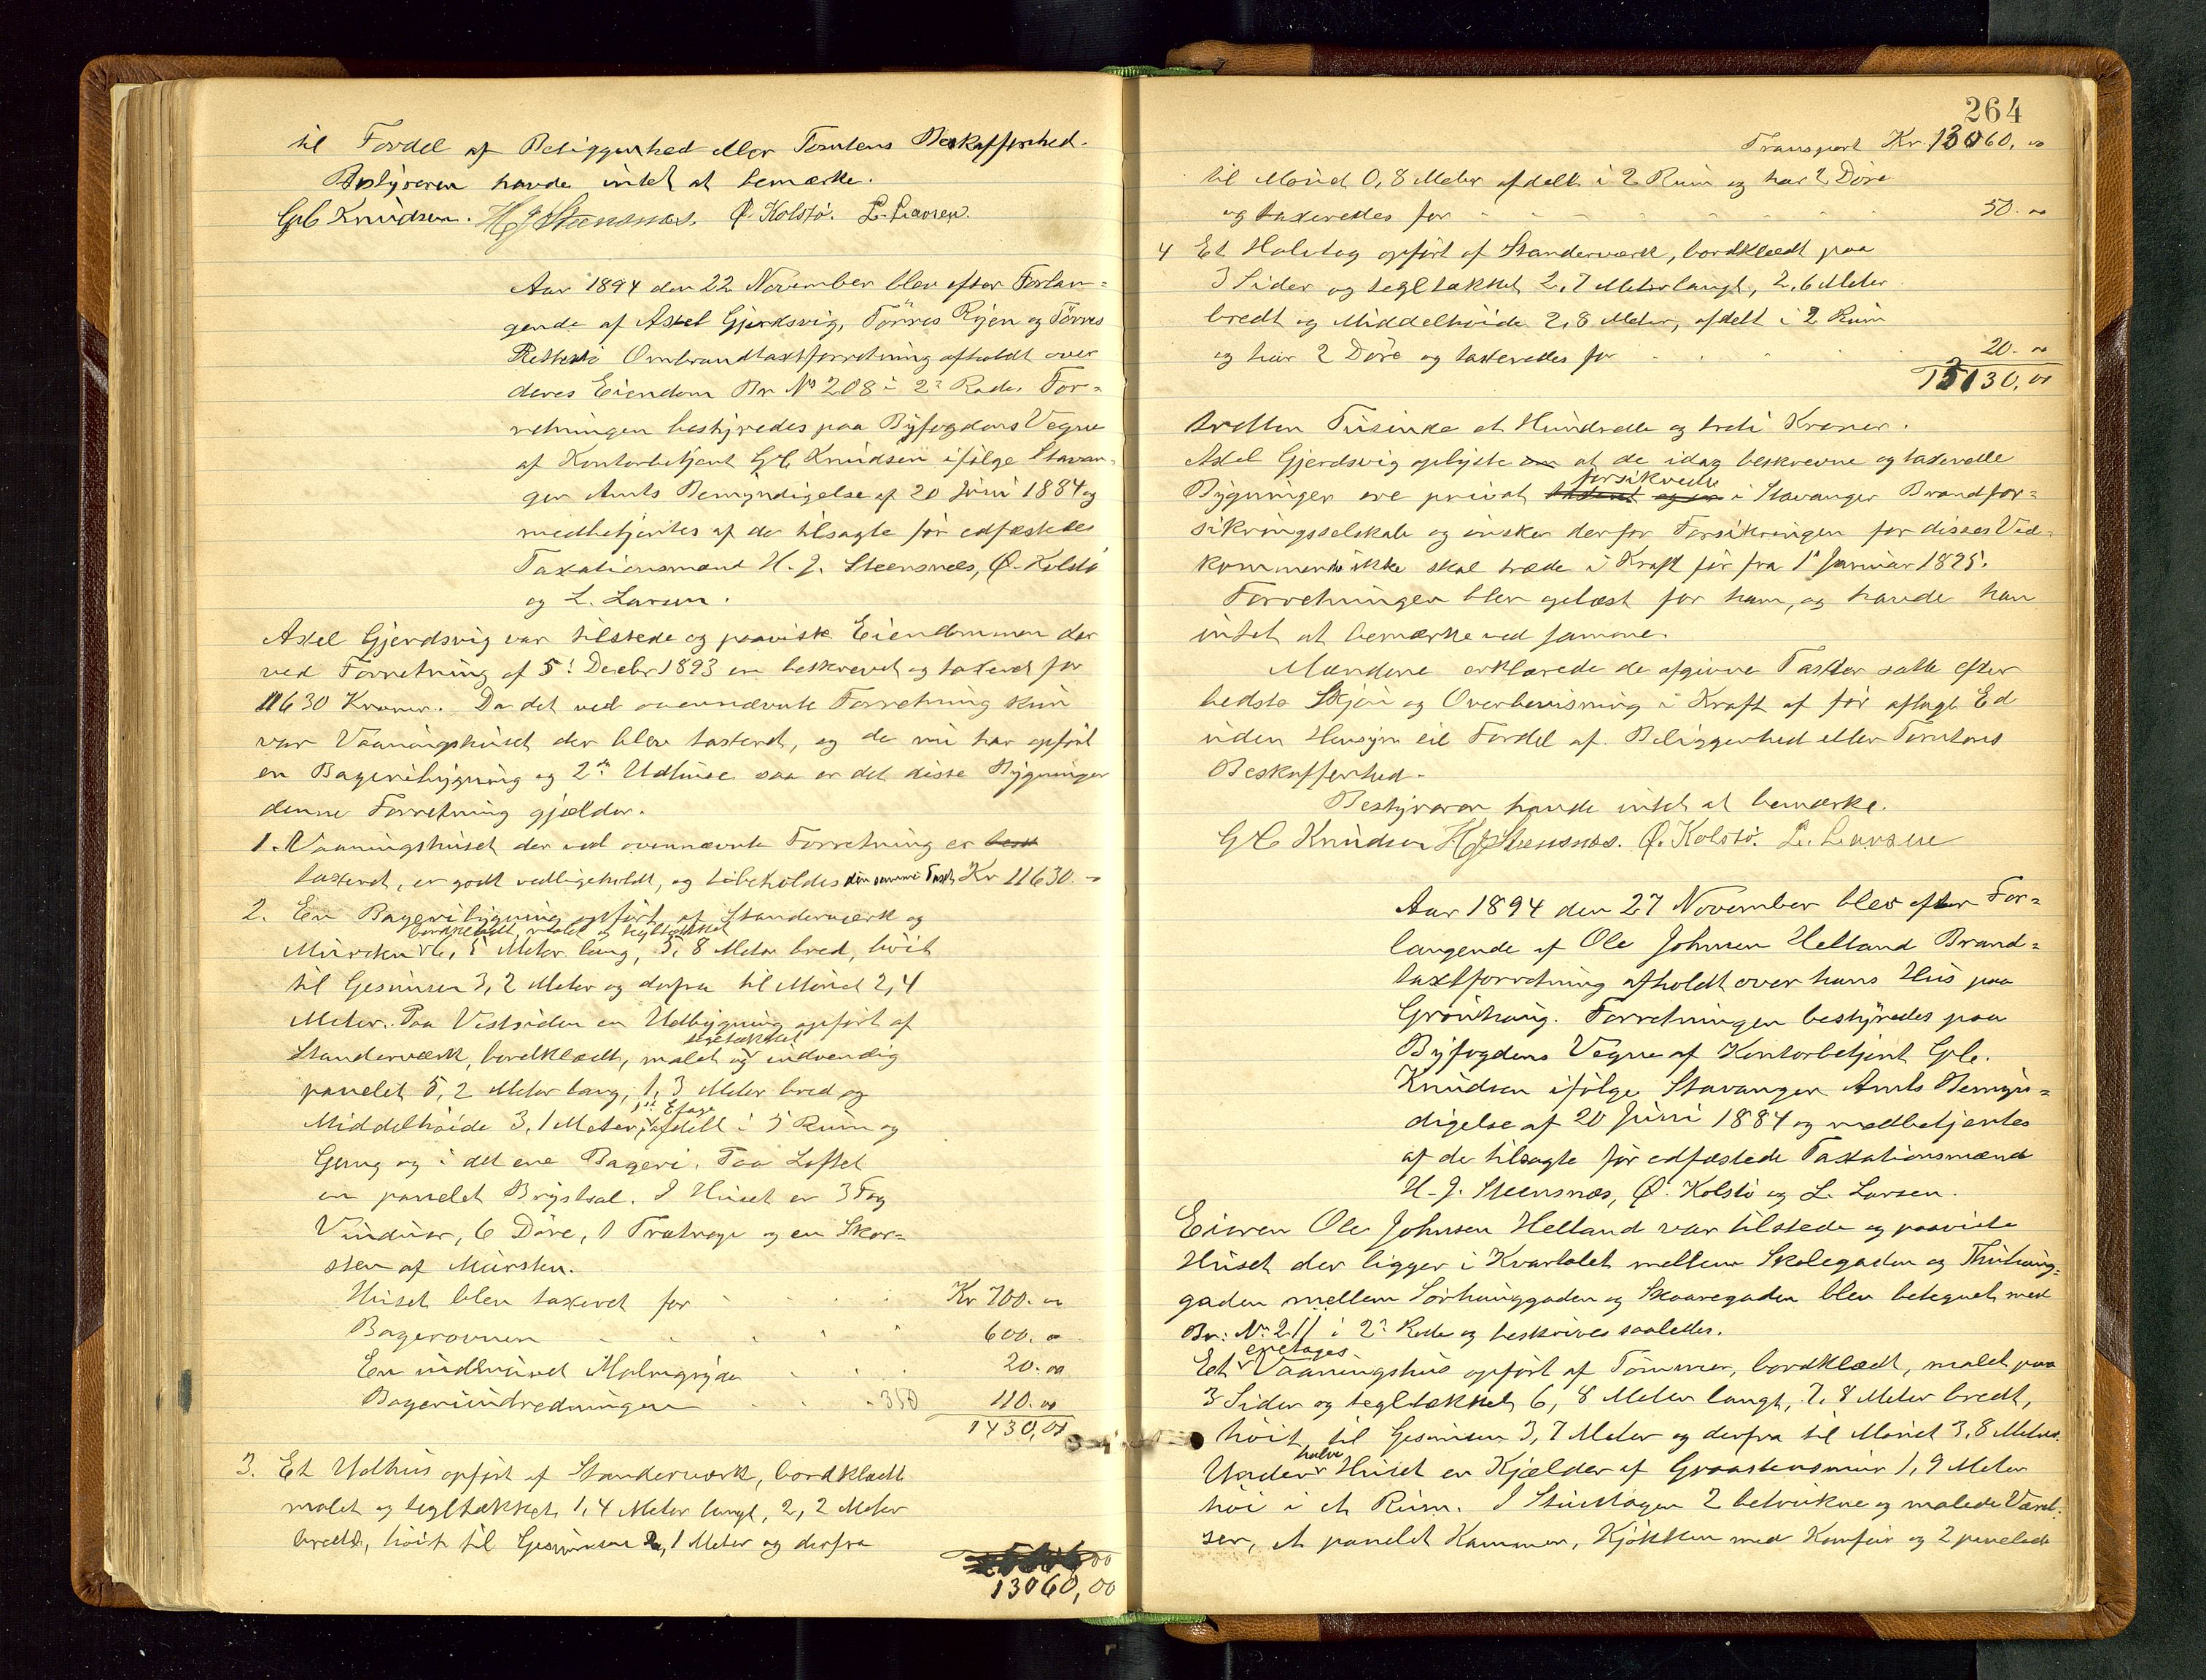 til Fordel af Beliggenhed eller Tomtens Beskaffenhed.
Bestyreren havde intet at bemærke.
GC Knudsen. H J Steensnæs. Ø. Kolstø. L. Larsen.
Aar 1894 den 22 November blev efter Forlan=
gende af Axel Gjerdsvig, Törres Rojen og Törres
Omtaxtforretning afholdt over
deres Eiendom Br No 208 i 2den Rode. For=
retningen bestyredes paa Byfogdens Vegne
af Kontorbetjent GC Knudsen ifølge Stavan=
ger Amts Bemyndigelse af 20 Juni 1884 og
medbetjentes af de tilsagte før edfæstede
Taxationsmænd H. J. Steensnæs, Ø. Kolstø
og L. Larsen.
Axel Gjerdsvig var tilstede og paaviste Eiendommen der
ved Forretning af 5! Decbr 1893 er beskrevet og taxeret for
11630 Kroner. Da det ved ovennævnte Forretning kun
var Vaaningshuset der blev taxeret, og de nu har opført
en Bageribygning og 2de Udhuse saa er det disse Bygninger
denne Forretning gjælder.
1. Vaaningshuset der ved ovennævnte Forretning er
taxeret, er godt vedligeholdt, og bibeholdes den samme Taxt Kr 11630.-
2. En Bageribygning opført af Standerværk og
bordklædt, malet og tegltækket
Mursten 6,5 Meter lang, 5,8 Meter bred, høit
til Gesimsen 3,2 Meter og derfra til Mønet 2,4
Meter. Paa Vestsiden en Udbygning opført af
tegltækket
Standerværk, bordklædt, malet og indvendig
panelet 5,2 Meter lang, 1,3 Meter bred og
1ste Etage
Middelhøide 3,1 Meter, afdelt i 5 Rum og
Gang og i det ene Bageri. Paa Loftet
en panelet Brystsal. I Huset er 3 Fag
Vinduer, 6 Døre, 1 Trætrappe og en Skor=
sten af Mursten.
Huset blev taxeret for Kr 700. 00
Bagerovnen 600. 00
En indmuret Malmgryde 20. 00
Bageriindredningen 350 110. 00
1430,00
3. Et Udhus opført af Standerværk, bordklædt
malet og tegltækket, 1,4 Meter langt, 2,2 Meter
bredt, høit til Gesimsen 2,1 Meter og derfra
13060,00
264
Transport Kr. 13060,00
til Mønet 0,8 Meter afdelt i 2 Rum og har 2 Døre
og taxeredes for 50. 00
4 Et Halvtag opført af Standerværk, bordklædt paa
3 Sider og tegltækket 2,7 Meter langt, 2,6 Meter
bredt og Middelhøide 2,8 Meter, afdelt i 2 Rum
og har 2 Døre og taxeredes for 20. 00
13130,00
tretten Tusinde et Hundrede og treti Kroner.
Axel Gjerdsvig oplyste om at de idag beskrevne og taxerede
forsikrede
Bygninger ere privat taxeret og er i Stavanger Brandfor=
sikringsselskab og ønsker derfor Forsikringen for disses Ved=
kommende ikke skal træde i Kraft før fra 1ste Januar 1895.
Forretningen blev oplæst for ham, og havde han
intet at bemærke ved samme.
Mændene erklærede de afgivne Taxter satte efter
bedste Skjøn og Overbevisning i Kraft af før aflagt Ed
uden Hensyn til Fordel af Beliggenhed eller Tomtens
Beskaffenhed.
Bestyreren havde intet at bemærke.
GC Knudsen H J Steensnæs. Ø. Kolstø. L. Larsen
Aar 1894 den 27 November blev efter For=
langende af Ole Johnsen Helland Brand=
taxtforretning afholdt over hans Hus paa
Grønhaug. Forretningen bestyredes paa
Byfogdens Vegne af Kontorbetjent GC.
Knudsen ifølge Stavanger Amts Bemyn=
digelse af 20 Juni 1884 og medbetjentes
af de tilsagte før edfæstede Taxationsmænd
H. J. Steensnæs, Ø. Kolstø og L. Larsen.
Eieren Ole Johnsen Helland var tilstede og paaviste
Huset der ligger i Kvartalet mellem Skolegaden og
gaden mellem Sørhauggaden og Skaaregaden blev betegnet med
Br: No 211 i 2den Rode og beskrives saaledes.
enetages
Et Vaaningshus opført af Tømmer, bordklædt, malet paa
3 Sider og tegltækket 6,8 Meter langt, 7,8 Meter bredt,
høit til Gesimsen 3,7 Meter og derfra til Mønet 3,8 Meter.
halve
Under Huset en Kjælder af Graastensmur 1,9 Meter
høi i et Rum. I Stuetagen 2 betrukne og malede Værel=
ser, et panelet Kammer, Kjøkken med Komfur og 2 panelede